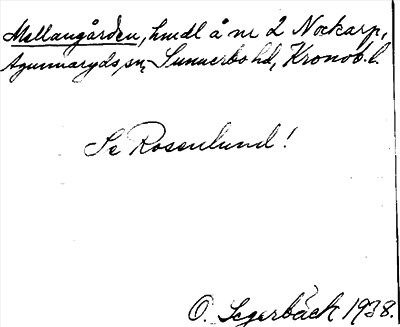 Mellangården, hmdl å nr 2 Nockarp,
Agunnaryds sn, Sunnerbo hd, Kronob. l.
Se Rosenlund!
O. Segerbäck 1938.